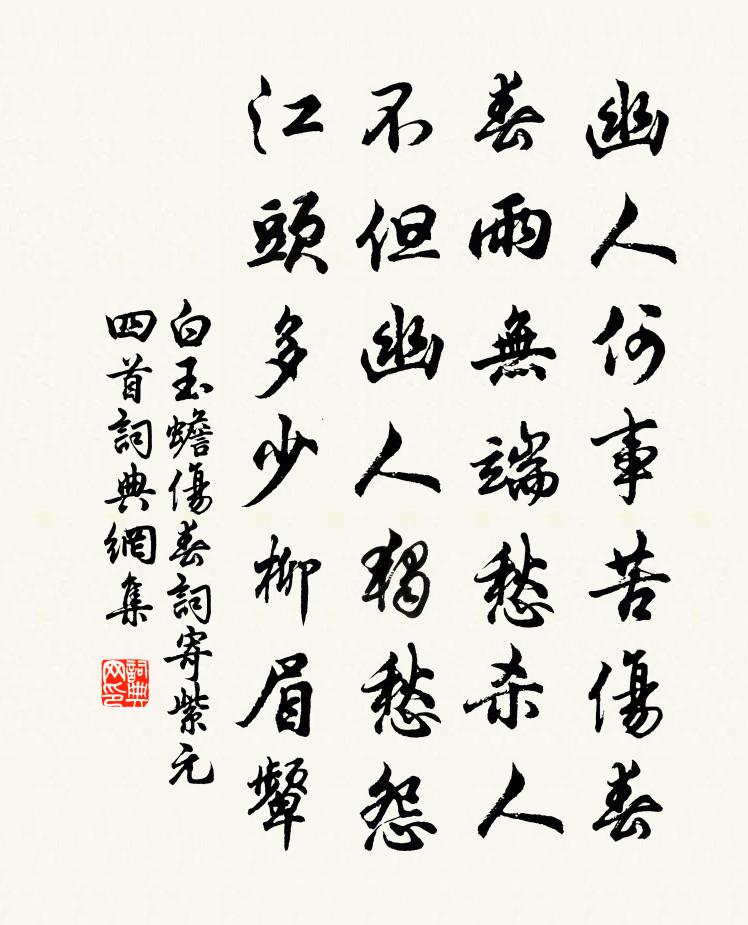 幽人何事苦傷春
春雨無端愁杀人
不但幽人獨愁怨
江頭多少柳眉顰
白玉蟾傷春詞寄紫元
四首詞典網集
詞典网印